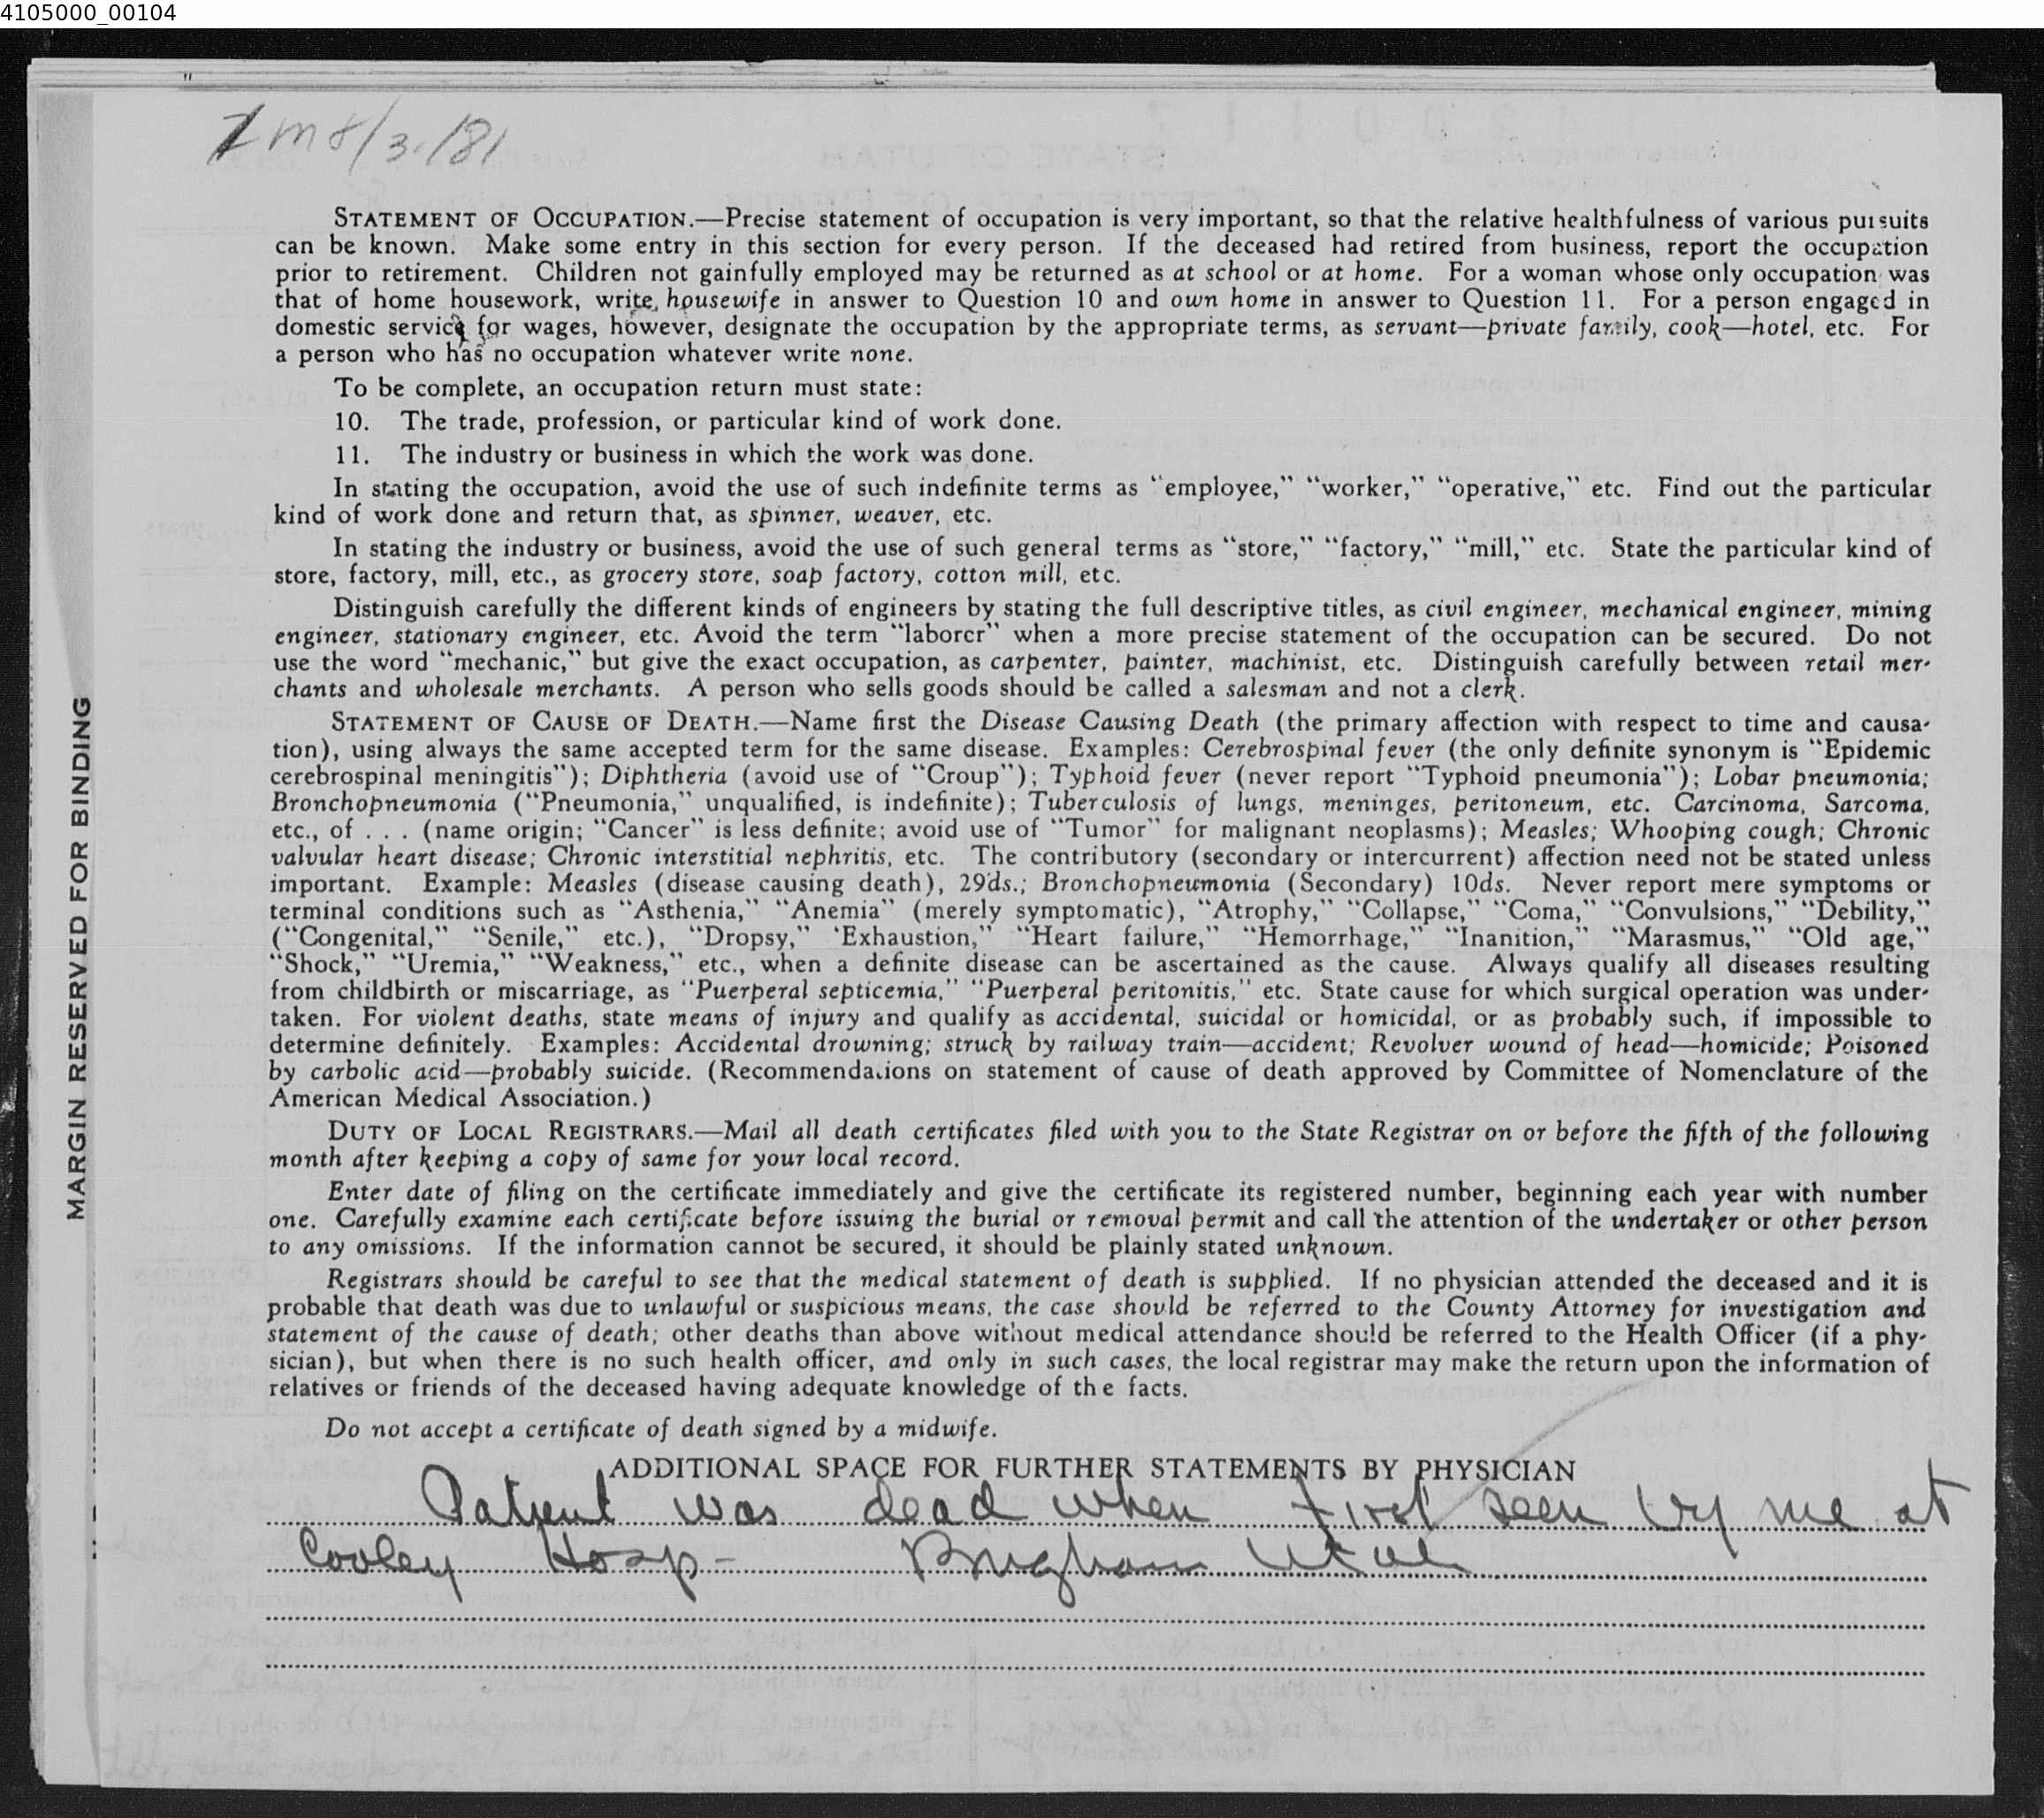 4105000_00104
m 8/3/81
STATEMENT OF OCCUPATION.—Precise statement of occupation is very important, so that the relative healthfulness of various pursuits
can be known. Make some entry in this section for every person. If the deceased had retired from business, report the occupation
prior to retirement. Children not gainfully employed may be returned as at school or at home. For a woman whose only occupation was
that of home housework, write housewife in answer to Question 10 and own home in answer to Question 11. For a person engaged in
domestic service for wages, however, designate the occupation by the appropriate terms, as servant—private family, cook—hotel, etc. For
a person who has no occupation whatever write none.
To be complete, an occupation return must state:
10. The trade, profession, or particular kind of work done.
11. The industry or business in which the work was done.
In stating the occupation, avoid the use of such indefinite terms as "employee," "worker," "operative," etc. Find out the particular
kind of work done and return that, as spinner, weaver, etc.
In stating the industry or business, avoid the use of such general terms as "store," "factory," "mill," etc. State the particular kind of
store, factory, mill, etc., as grocery store, soap factory, cotton mill, etc.
Distinguish carefully the different kinds of engineers by stating the full descriptive titles, as civil engineer, mechanical engineer, mining
engineer, stationary engineer, etc. Avoid the term "laborer" when a more precise statement of the occupation can be secured. Do not
use the word "mechanic," but give the exact occupation, as carpenter, painter, machinist, etc. Distinguish carefully between retail mer-
chants and wholesale merchants. A person who sells goods should be called a salesman and not a clerk.
STATEMENT OF CAUSE OF DEATH.—Name first the Disease Causing Death (the primary affection with respect to time and causa-
tion), using always the same accepted term for the same disease. Examples: Cerebrospinal fever (the only definite synonym is "Epidemic
cerebrospinal meningitis"); Diphtheria (avoid use of "Croup"); Typhoid fever (never report "Typhoid pneumonia"); Lobar pneumonia;
Bronchopneumonia ("Pneumonia," unqualified, is indefinite); Tuberculosis of lungs, meninges, peritoneum, etc. Carcinoma, Sarcoma,
etc., of . . . (name origin; "Cancer" is less definite; avoid use of "Tumor" for malignant neoplasms); Measles; Whooping cough; Chronic
valvular heart disease; Chronic interstitial nephritis, etc. The contributory (secondary or intercurrent) affection need not be stated unless
important. Example: Measles (disease causing death), 29ds.; Bronchopneumonia (Secondary) 10ds. Never report mere symptoms or
terminal conditions such as "Asthenia," "Anemia" (merely symptomatic), "Atrophy," "Collapse," "Coma," "Convulsions," "Debility,"
("Congenital," "Senile," etc.), "Dropsy," 'Exhaustion," "Heart failure," "Hemorrhage," "Inanition," "Marasmus," "Old age,"
"Shock," "Uremia," "Weakness," etc., when a definite disease can be ascertained as the cause. Always qualify all diseases resulting
from childbirth or miscarriage, as "Puerperal septicemia," "Puerperal peritonitis," etc. State cause for which surgical operation was under-
taken. For violent deaths, state means of injury and qualify as accidental, suicidal or homicidal, or as probably such, if impossible to
determine definitely. Examples: Accidental drowning; struck by railway train—accident; Revolver wound of head—homicide; Poisoned
by carbolic acid—probably suicide. (Recommendations on statement of cause of death approved by Committee of Nomenclature of the
American Medical Association.)
DUTY OF LOCAL REGISTRARS.—Mail all death certificates filed with you to the State Registrar on or before the fifth of the following
month after keeping a copy of same for your local record.
Enter date of filing on the certificate immediately and give the certificate its registered number, beginning each year with number
one. Carefully examine each certificate before issuing the burial or removal permit and call the attention of the undertaker or other person
to any omissions. If the information cannot be secured, it should be plainly stated unknown.
Registrars should be careful to see that the medical statement of death is supplied. If no physician attended the deceased and it is
probable that death was due to unlawful or suspicious means, the case should be referred to the County Attorney for investigation and
statement of the cause of death; other deaths than above without medical attendance should be referred to the Health Officer (if a phy-
sician), but when there is no such health officer, and only in such cases, the local registrar may make the return upon the information of
relatives or friends of the deceased having adequate knowledge of the facts.
Do not accept a certificate of death signed by a midwife.
ADDITIONAL SPACE FOR FURTHER STATEMENTS BY PHYSICIAN
Patient was dead when first seen by me at
Cooley Hosp- Brigham Utah
MARGIN RESERVED FOR BINDING